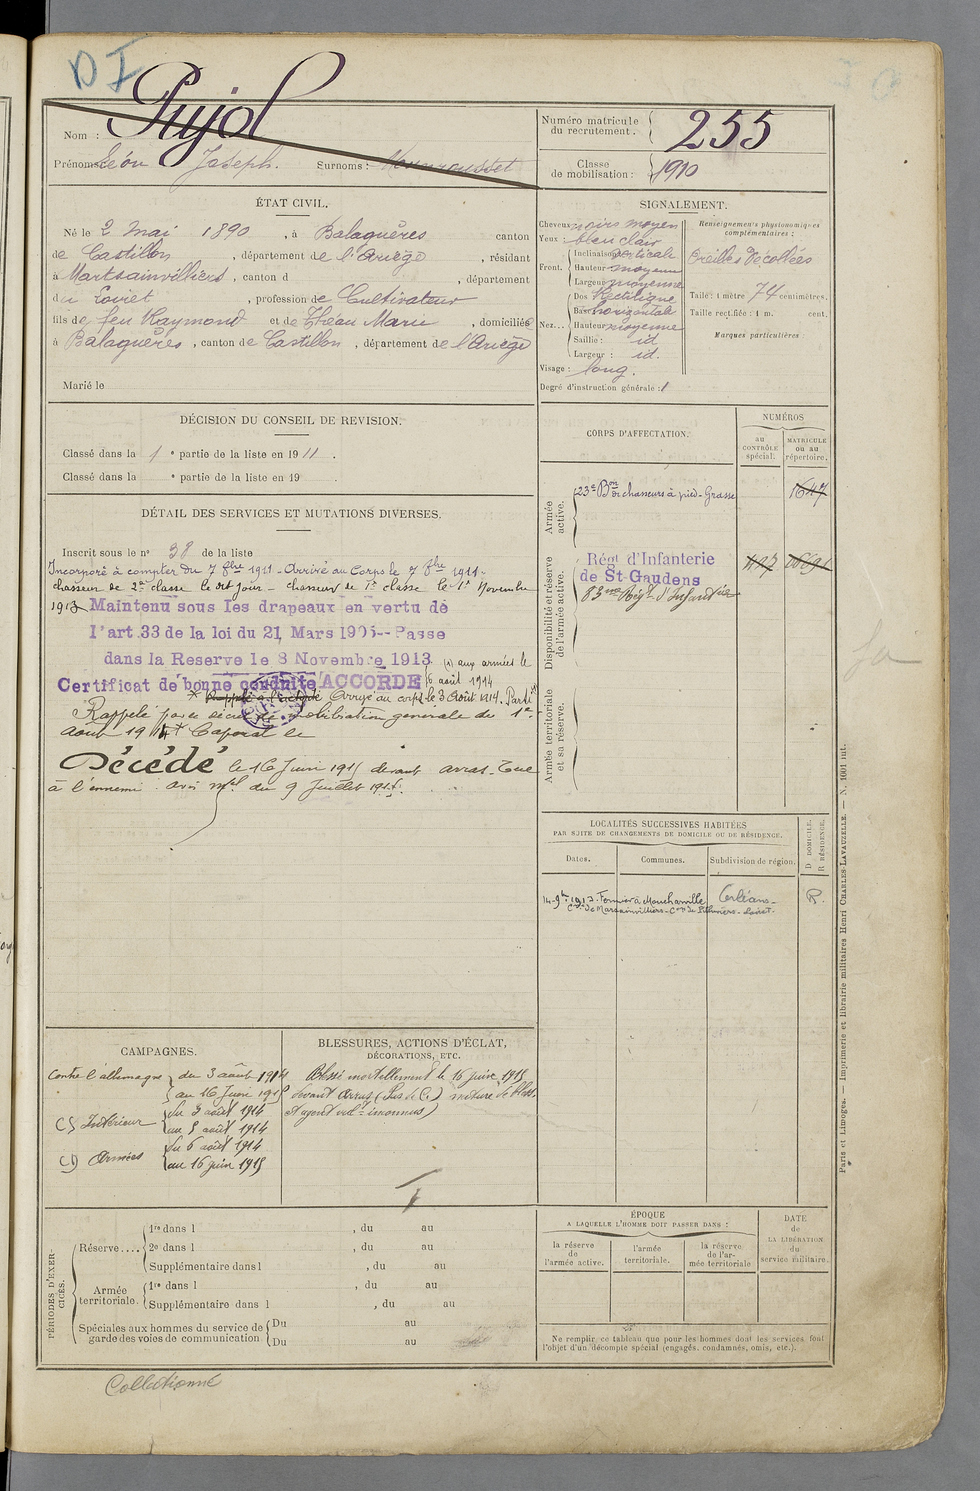 DI
Nom : Pujol
Prénoms: Léon Joseph. Surnoms :
Numéro matricule du recrutement. 255
Classe de mobilisation : 1910
ÉTAT CIVIL.
Né le 2 mai 1890 , à Balaguères canton
de Castillon , département de l'Ariège , résidant
à Martsainvilliers , canton d , département
du Loiret , profession de Cultivateur
fils de feu Raymond et de Théau Marie , domiciliés
à Balaguères , canton de Castillon , département de l'Ariège
Marié le
SIGNALEMENT.
Cheveux noirs moyen
Yeux : bleu clair
Front. Inclinaison verticale
Hauteur moyenne
Largeur moyenne
Nez... Dos Rectiligne
Base horizontale
Hauteur moyenne
Saillie : id
Largeur : id.
Visage : long.
Degré d'instruction générale : 1
Renseignements physionomiques complémentaires :
Oreilles Décollées
Taille : 1 mètre 74 centimètres.
Taille rectifiée : 1 m. cent.
Marques particulières :
DÉCISION DU CONSEIL DE REVISION.
Classé dans la 1 e partie de la liste en 19 11 .
Classé dans la e partie de la liste en 19 .
DÉTAIL DES SERVICES ET MUTATIONS DIVERSES.
Inscrit sous le no 38 de la liste
Incorporé à compter du 7 8bre 1911 - Arrivé au Corps le 7 8bre 1911 -
chasseur de 2e classe le dit jour - chasseur de 1e classe le 1er Novembre
1913 Maintenu sous les drapeaux en vertu de
l'art.33 de la loi du 21 Mars 1905-- Passe
dans la Reserve le 8 Novembre 1913
(1) aux armées le
6 août 1914
Certificat de bonne conduite ACCORDE
Arrivé au corps le 3 Août 1914. Parti
Rappelé par décret de mobilisation générale du 1er
Août 1914 Caporal le
Décédé le 16 Juin 1915 devant Arras - Tué
à l'ennemi. avis mel du 9 Juillet 1915.
CORPS D'AFFECTATION.
NUMÉROS
au CONTRÔLE spécial.
MATRICULE ou au répertoire.
Armée active.
23e Bon de chasseurs à pied - Grasse 1647
Disponibilité et réserve de l'armée active.
Régt d'Infanterie
de St-Gaudens
83me Régt d'Infanterie
Armée territoriale et sa réserve.
LOCALITÉS SUCCESSIVES HABITÉES
PAR SUITE DE CHANGEMENTS DE DOMICILE OU DE RÉSIDENCE.
Dates. Communes. Subdivision de région. D DOMICILE. R RÉSIDENCE.
14-9bre 1913 - Fermier à Moucharville Orléans - R.
Cne de Marsainvilliers - Con de Pithiviers - Loiret.
CAMPAGNES.
Contre l'allemagne du 3 août 1914
au 16 Juin 1915
C S Intérieur du 3 août 1914
au 5 août 1914
C D Armées du 6 août 1914
au 16 juin 1915
BLESSURES, ACTIONS D'ÉCLAT,
DÉCORATIONS, ETC.
Blessé mortellement le 16 juin 1915
devant Arras (Pas de C.) nature de bless.
et agent vul. inconnus)
PÉRIODES D'EXERCICES.
Réserve.... 1re dans l , du au
2e dans l , du au
Supplémentaire dans l , du au
Armée territoriale. 1re dans l , du au
Supplémentaire dans l , du au
Spéciales aux hommes du service de garde des voies de communication Du au
Du au
ÉPOQUE
A LAQUELLE L'HOMME DOIT PASSER DANS :
la réserve de l'armée active.
l'armée territoriale.
la réserve de l'armée territoriale
DATE de LA LIBÉRATION du service militaire.
Ne remplir ce tableau que pour les hommes dont les services font
l'objet d'un décompte spécial (engagés, condamnés, omis, etc.).
Collationné
Paris et Limoges. — Imprimerie et librairie militaires Henri CHARLES-LAVAUZELLE. — N. 1601 int.